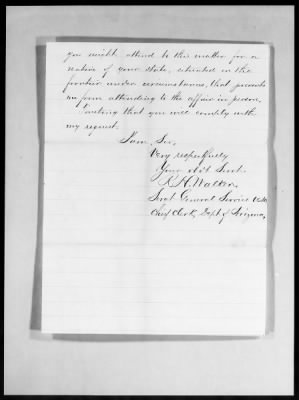 you might attend to this matter for a
native of your State, situated on the
frontier under circumstances, that prevents
me from attending to the affair in person.
Trusting that you will comply with
my request.
I am Sir,
Very respectfully
Your obt Servt.
R. H. Walker,
General Service
Chief Clerk, Dept of Arizona,